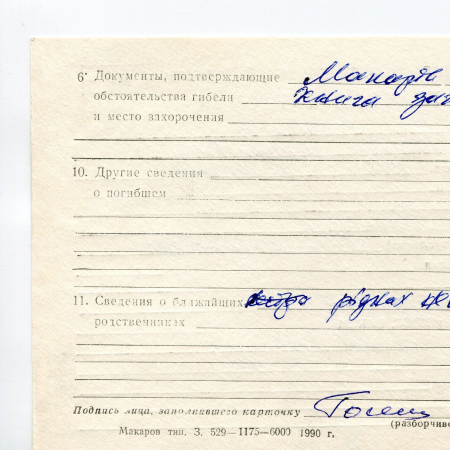 6· Документы, подтверждающие
обстоятельства гибели Книга
и место захоронения
10. Другие сведения
о погибшем
11. Сведения о ближайших рідних
родственниках
Подпись лица, заполнившего карточку
(разборчиво
Макаров тип. З. 529—1175—6000 1990 г.